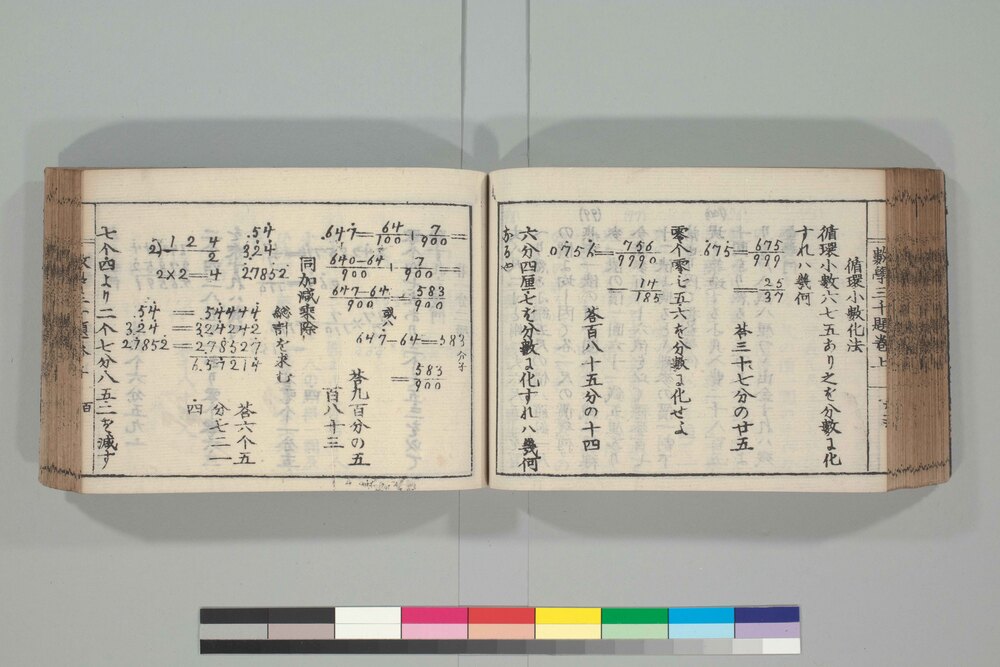 循環小數化法
循環小數六七五あり之を分數に化
すれハ幾何
.675=675/999
=25/37
答三十七分の廿五
零个零七五六を分數に化せよ
0756=756/9990
14/185
答百八十五分の十四
六分四厘七を分數に化すれハ幾何
なるや
.647=64/100+7/900=
640-64/900+7/900=
647-64/900=583/900
或ハ
647-64=583 分子
=583/900
答九百分の五
百八十三
同加減乘除
.54
3.24
2.7852
總計を求む
2)1 2 4
2
2×2=4
.54=.5444
3.24=3.2424
2.7852=2.78527
6.57214
答六个五
分七二一
四
七个四より二个七分八五二を減す
數學三千題卷上
百